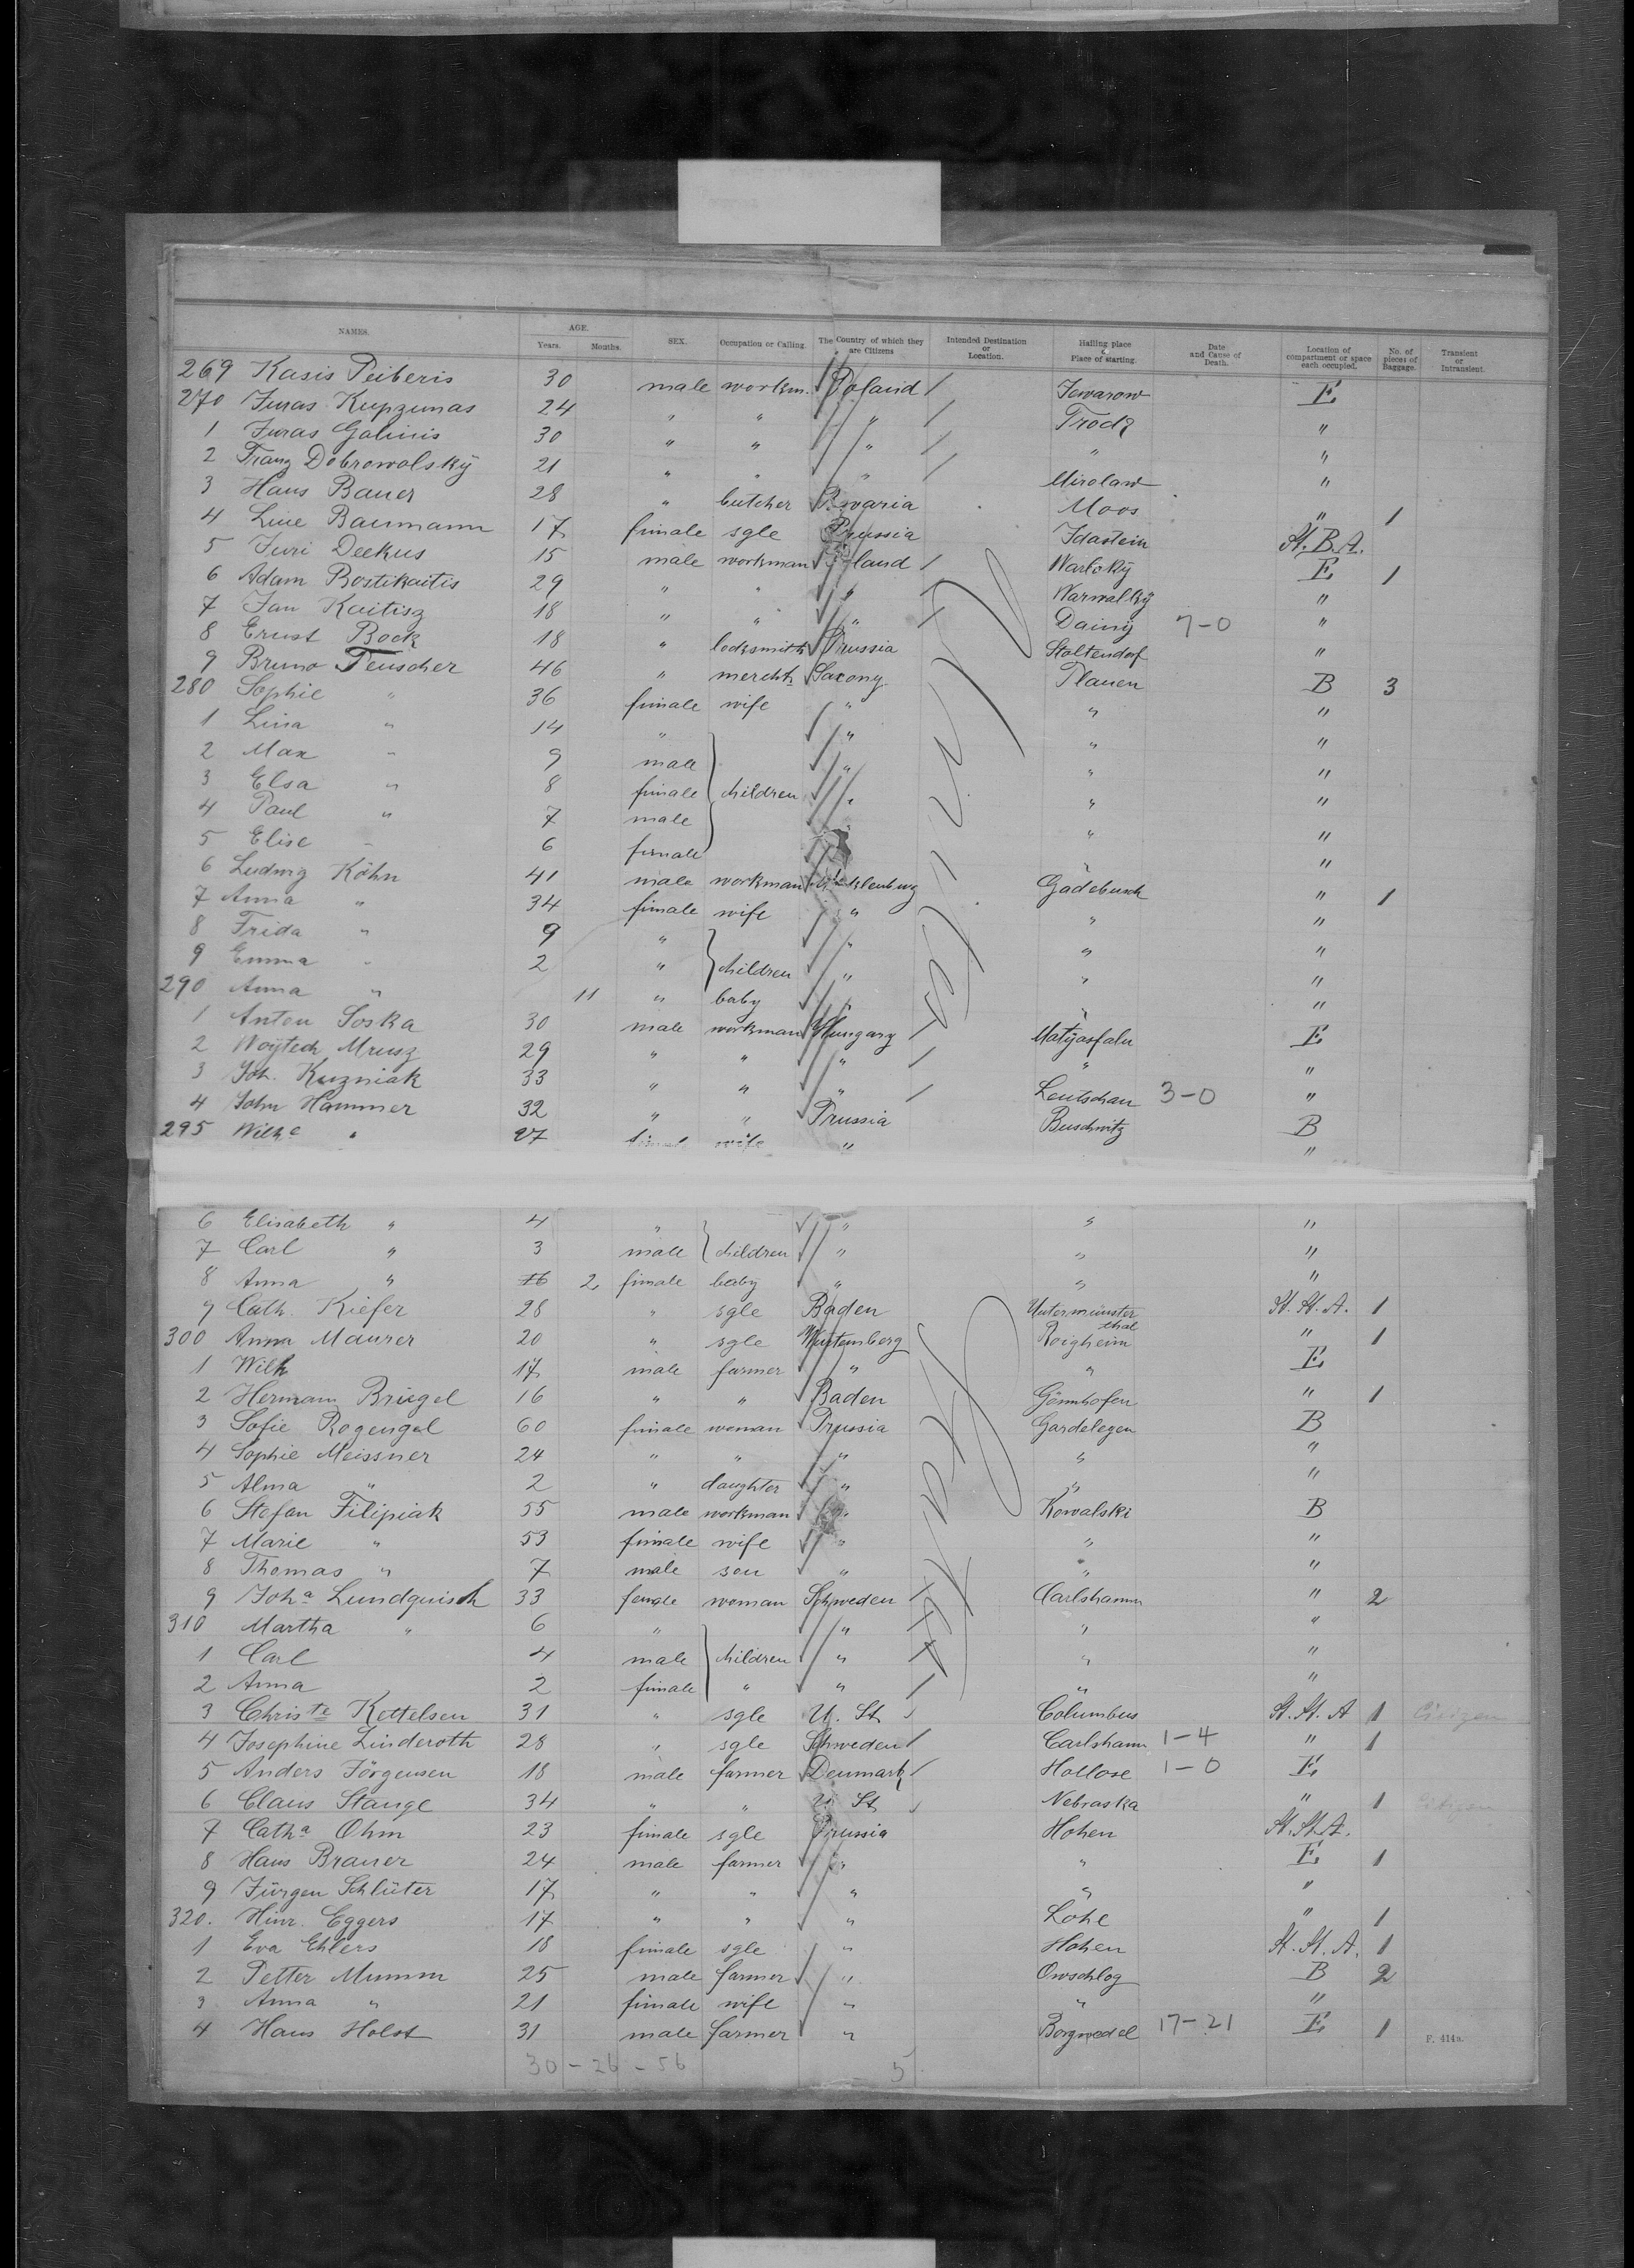 NAMES. AGE. Years. Months. SEX. Occupation or Calling. The Country of which they are Citizens Intended Destination or Location. Hailing place & Place of starting. Date and Cause of Death. Location of compartment or space each occupied. No. of pieces of Baggage. Transient or Intransient.
269 Kasis Peiberis 30 male workm. Poland Tewarow E
270 Juras Kupzunas 24 " " " Trodz "
1 Juras Galinis 30 " " " " "
2 Franz Dobrowolsky 21 " " " Mirolaw "
3 Hans Bauer 28 " butcher Bavaria Moos " 1
4 Line Baumann 17 female sgle Prussia Idastein St. B. A.
5 Juri Deekus 15 male workman Poland Warloky E 1
6 Adam Bostikaitis 29 " " " Warwalky "
7 Jan Kaitisz 18 " " " Dainy 7-0 "
8 Ernst Bock 18 " locksmith Prussia Stoltendorf "
9 Bruno Teuscher 46 " mercht Saxony Plauen B 3
280 Sophie " 36 female wife " " "
1 Lina " 14 " " " "
2 Max " 9 male " " "
3 Elsa " 8 female children " " "
4 Paul " 7 male " "
5 Elise " 6 female " "
6 Ludwig Köhn 41 male workman Mecklenburg Gadebusch " 1
7 Anna " 34 female wife " " "
8 Frida " 9 " " " "
9 Emma " 2 " children " " "
290 Anna " 11 " baby " " "
1 Anton Soska 30 male workman Hungary Matyasfalu E
2 Woytech Mrusz 29 " " " " "
3 Joh. Kuzniak 33 " " " Leutschau 3-0 "
4 John Hammer 32 " " Prussia Buschwitz B
295 Wilhe " 27 female wife " "
6 Elisabeth " 4 " " " "
7 Carl " 3 male children " " "
8 Anna " 2 female baby " " "
9 Cath. Kiefer 28 " sgle Baden Untermünsterthal St. St. A. 1
300 Anna Maurer 20 " sgle Wurtemberg Roigheim " 1
1 Wilh 17 male farmer " " E
2 Hermann Briegel 16 " " Baden Gömhofen " 1
3 Sofie Rogengel 60 female woman Prussia Gardelegen B
4 Sophie Meissner 24 " " " " "
5 Alma " 2 " daughter " " "
6 Stefan Filipiak 55 male workman " Kowalski B
7 Marie " 53 female wife " " "
8 Thomas " 7 male son " " "
9 Joha Lundquisch 33 female woman Schweden Carlshamn " 2
310 Martha " 6 " " " "
1 Carl 4 male children " " "
2 Anna 2 female " " " "
3 Christe Kettelsen 31 " sgle U. St. Columbus St. St. A 1 Citizen
4 Josephine Linderoth 28 " sgle Schweden Carlshamn 1-4 " 1
5 Anders Jörgensen 18 male farmer Denmark Hollose 1-0 E
6 Claus Stange 34 " " U St Nebraska " 1 Citizen
7 Catha Ohm 23 female sgle Prussia Hohen St. St. A.
8 Hans Brauer 24 male farmer " " E 1
9 Jürgen Schlüter 17 " " " " "
320. Hinr. Eggers 17 " " " Lohe " 1
1 Eva Ehlers 18 female sgle " Hohen St. St. A. 1
2 Petter Mumm 25 male farmer " Owschlog B 2
3 Anna " 21 female wife " " "
4 Hans Holst 31 male farmer " Borgwedel 17-21 E 1
F. 414a.
30-26-56 5